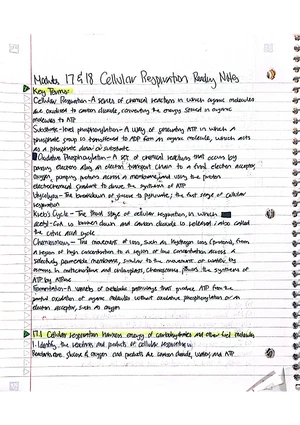 Modules 17 & 18 Cellular Respiration Reading Notes
Key Terms:
Cellular Respiration - A series of chemical reactions in which organic molecules
are oxidized to carbon dioxide, converting the energy stored in organic
molecules to ATP
Substrate-level phosphorylation - A way of generating ATP in which a
phosphate group is transferred to ADP from an organic molecule, which acts
as a phosphate donor or substrate
Oxidative Phosphorylation - A set of chemical reactions that occurs by
passing electrons along an electron transport chain to a final electron acceptor,
oxygen, pumping protons across a membrane, and using the proton
electrochemical gradient to drive the synthesis of ATP
Glycolysis - The breakdown of glucose to pyruvate; the first stage of cellular
respiration
Kreb's Cycle - The third stage of cellular respiration, in which
acetyl-CoA is broken down and carbon dioxide is released; also called
the citric acid cycle
Chemiosmosis - The movement of ions, such as Hydrogen ions (protons), from
a region of high concentration to a region of low concentration across a
selectively permeable membrane, similar to the movement of water by
osmosis. In mitochondria and chloroplasts, chemiosmosis the synthesis of
ATP by ATPase
Fermentation - A variety of metabolic pathways that produce ATP from the
partial oxidation of organic molecules without oxidative phosphorylation or an
electron acceptor, such as oxygen
17.1 Cellular respiration harness energy of carbohydrates and other fuel molecules
1. Identify the reactants and products of cellular respiration
Reactants are glucose & oxygen and products are carbon dioxide, water, and ATP